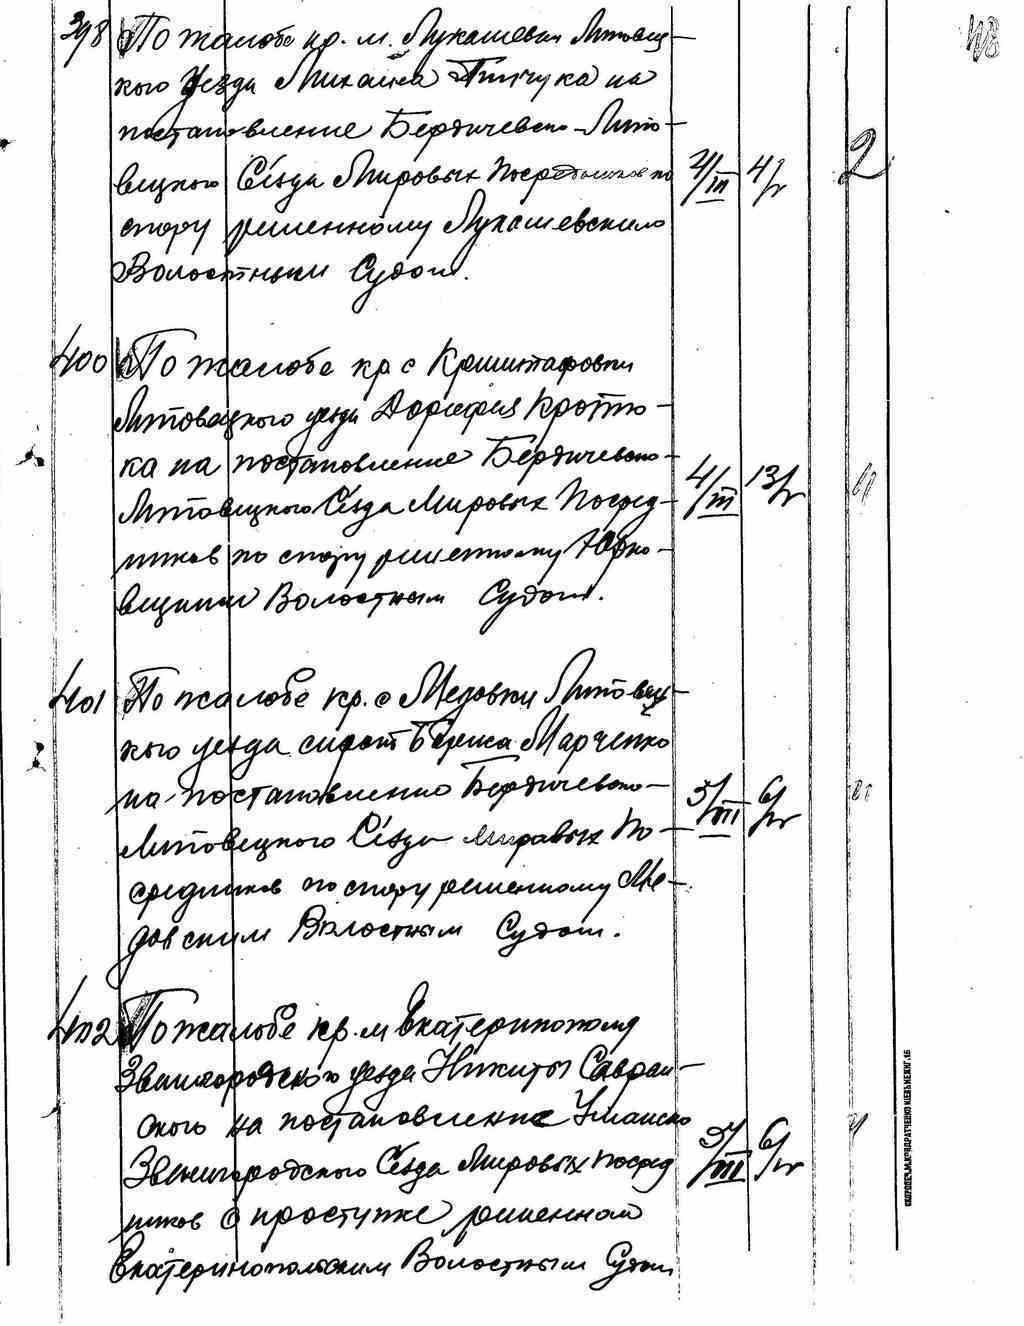 398 По жалобе кр. м. Лукашевки Липовец-
кого уезда Михаила на
постановление Бердичевско-Липо-
вецкого Съезда Мировых Посредников по 2/III 4/IV 2
спору решенному Лукашевским
Волостным Судом.
400 По жалобе кр с Криштофовки
Липовецкого уезда Дорофея Кротю-
ка на постановление Бердичевско-
Липовецкого Съезда Мировых Посред- 4/III 13/IV
ников по спору решенному Юрко-
вецким Волостным Судом.
401 По жалобе кр. с Медовки Липовец-
кого уезда сирот Бориса Марченко
на постановление Бердичевско-
Липовецкого Съезда Мировых По- 5/III 6/IV
средников по спору решенному Ме-
довским Волостным Судом.
402 По жалобе кр. м Екатеринополя
Звенигородского уезда Никиты Савран-
ского на постановление Уманско
Звенигородского Съезда Мировых Посред 5/III 6/IV
ников о проступке решенном
Екатеринопольским Волостным Судом